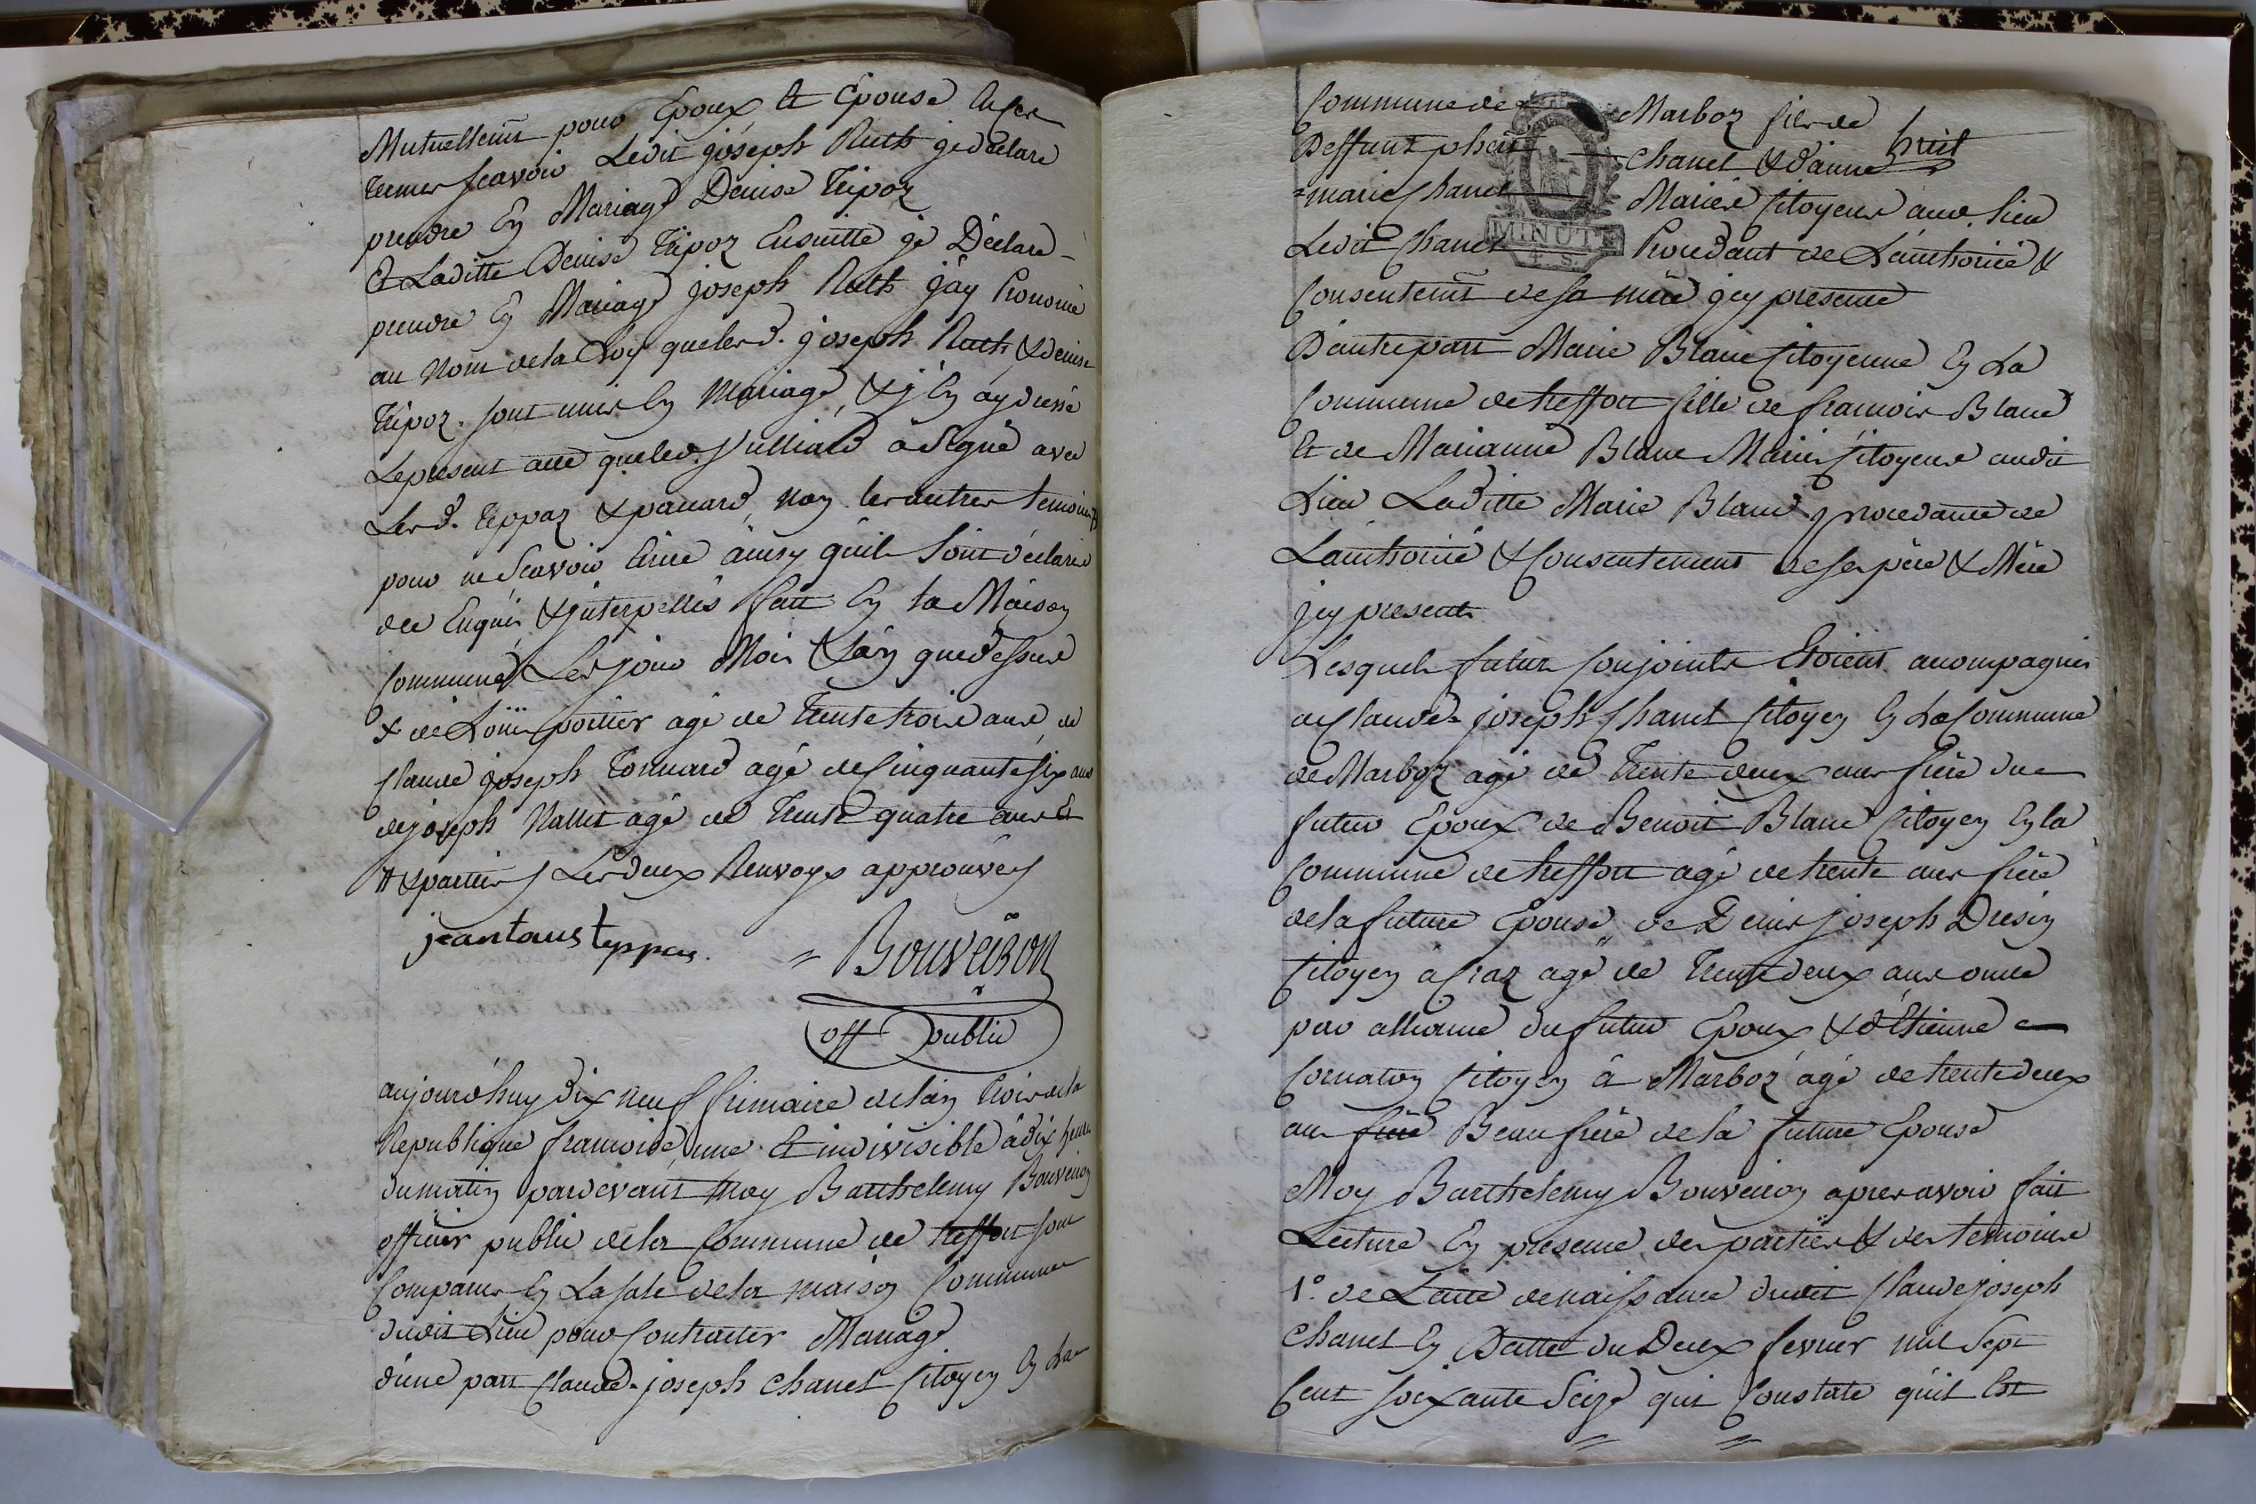 Mutuellemt pour Epoux et Epouse En ces
termes scavoir Ledit joseph Ruth je déclare
prendre En Mariage Denise Tripoz
Et Laditte Denise Tripoz Ensuitte je Déclare
prendre En Mariage joseph Ruth j'ay Prononcé
au Nom de la Loy que lesd. joseph Ruth & denise
Tripoz sont unis En Mariage, & j'En ay dressé
Le present acte que led. Julliard a Signé avec
Lesd. Teppaz & ponard, Non les autres temoins #
pour ne Scavoir Ecrire ainsy quils Sont déclaré
de Enquis & jnterpellés fait En la Maison
Commune Les jour Mois & an que dessus
+ de Louis poitier agé de trente trois ans, de
Claude joseph Tonnard agé de Cinquante six ans
de joseph Nallet agé de Trente quatre ans Et
# & parties / Les deux Renvoys approuvés /
jean Teppas.
= Bouveiron
off publie
aujourd'huy dix neuf frimaire de l'an trois de la
Republique francoise, une Et indivisible à dix heures
du matin pardevant Moy Barthelemy Bouveiron
officier public de la Commune de treffort sont
Comparus En La sale de la maison Commune
dudit Lieu pour Contracter Mariage
d'une part Claude-joseph Chanel Citoyen En La
Commune de Marboz fils de
Deffunt Chanel & d'anne huit
=marie Chanel Mariés Citoyens aud. lieu
Ledit Chanel Procedant de L'authorité &
Consentemt de sa mère jcy presente
D'autre part Marie Blanc Citoyenne En La
Commune de treffort fille de francois Blanc
Et de Marianne Blanc Mariés Citoyens audit
Lieu Laditte Marie Blanc, procedante de
L'authorité & Consentement de ses père & Mère
jcy presents
Lesquels futur Conjoints Etoient acompagnés
de Claude-joseph Chanel Citoyen En La Commune
de Marboz agé de Trente deux ans frère du
futur Epoux de Benoit Blanc Citoyen En la
Commune de treffort agé de trente ans frère
de la future Epouse, de Denis joseph Dresin
Citoyen a Craz agé de Trente deux ans oncle
par alliance du futur Epoux & d'Etienne
Cornaton Citoyen à Marboz agé de trente deux
ans frere Beaufrère de la future Epouse
Moy Barthelemy Bouveiron apres avoir fait
Lecture En presence des parties & des temoins
1º. de L'acte de naissance dudit Claude joseph
Chanel En Datte du Deux fevrier mil Sept
Cent soixante Seize qui Constate qu'il Est
MINUTE
4. S.